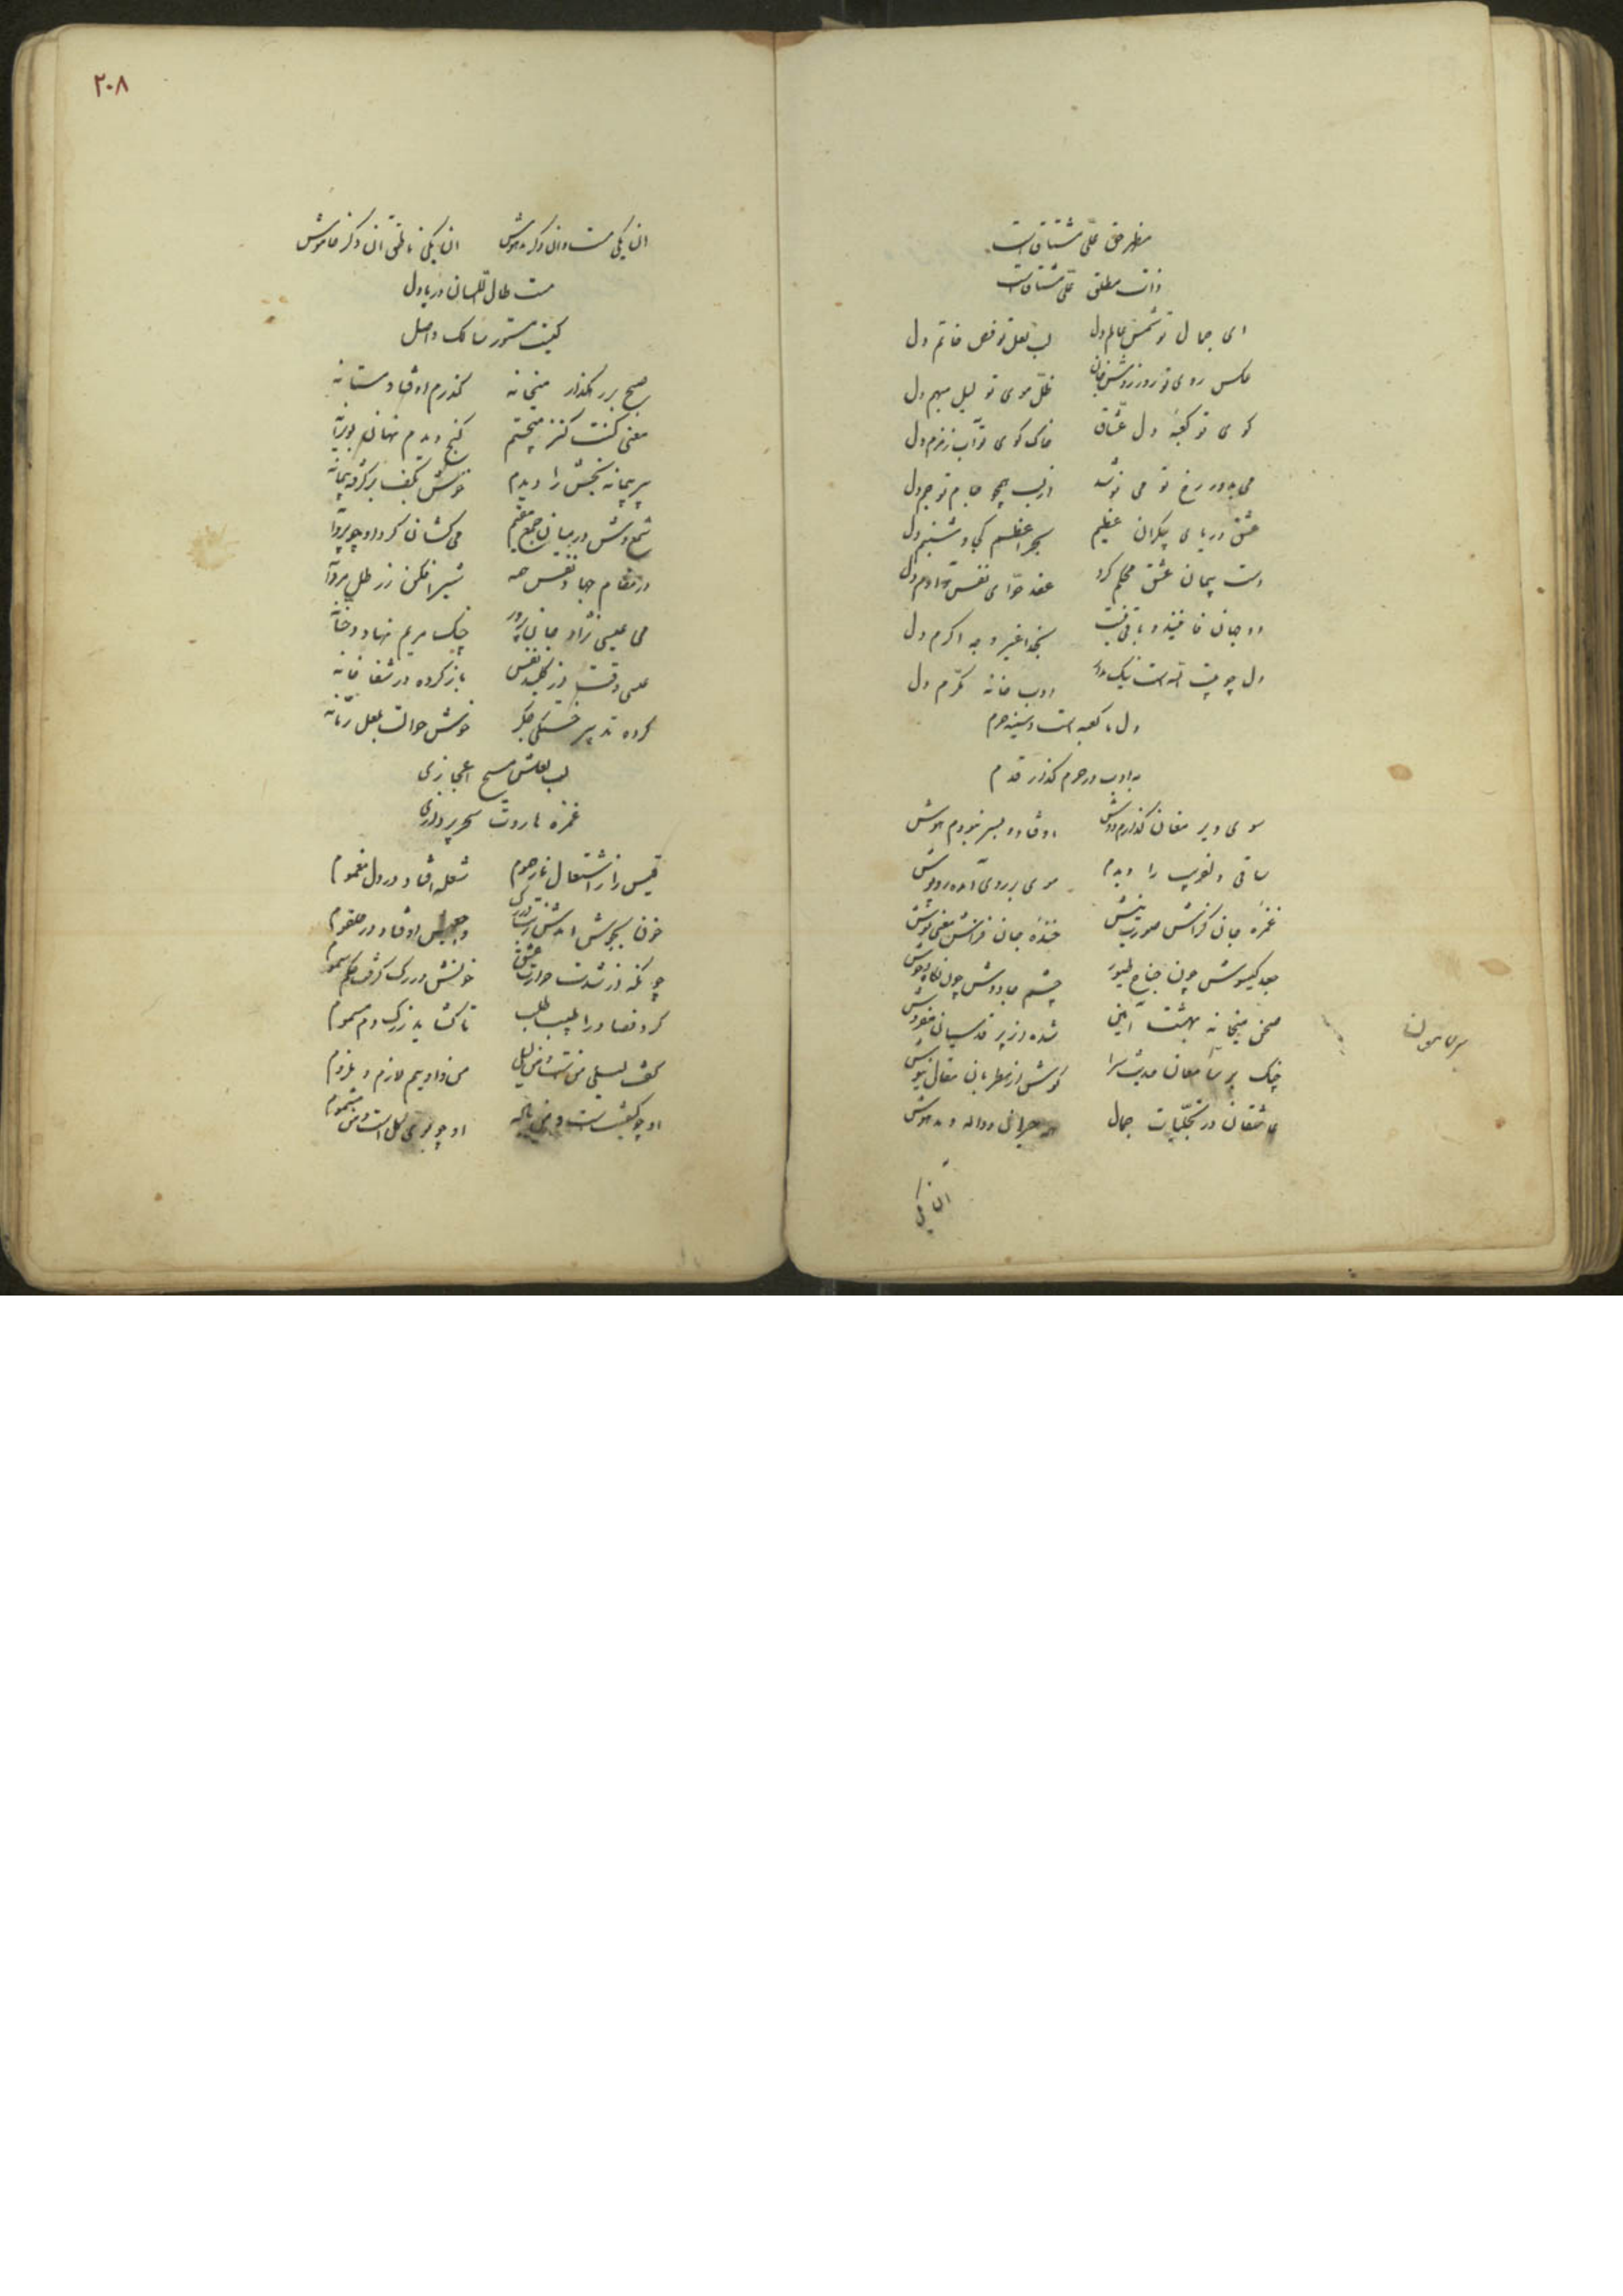 مظهر حق علی مشتاق است
ذات مطلق علی مشتاق است
ای جمال تو شمس عالم دل لب لعل تو فص خاتم دل
عکس روی تو روز روشن جان ظل موی تو لیل مبهم دل
کوی تو کعبهٔ دل عشاق خاک کوی تو آب زمزم دل
می بدور رخ تو می نوشد از لب همچو جام تو جم دل
عشق دریای بیکران عظیم بحر اعظم کجا و شبنم دل
دست پیمان عشق محکم کرد عقد حوای نفس و آدم دل
دو جهان فانیند و باقی نیست بجز اغیر وجه اکرم دل
دل چو بیت الله است نیک بدار ادب خانه مکرم دل
دل ما کعبه است و سینه حرم
به ادب در حرم گذار قدم
سوی دیر مغان گذارم دوش اوفتاد و بسر نبودم هوش
ساقی دلفریب را دیدم موی بر روی آمده روپوش
غمزهٔ جان گزاش صورت نیش خندهٔ جان فزاش معنی نوش
جعد گیسوش چون جناح طیور چشم جادوش چون نگاه وحوش
صحن میخانه بهشت آیین شده از پر قدسیان مفروش
چنگ پیر مغان حدیث سرا گوش از مطربان مقال نیوش
عاشقان در تجلیات جمال همه حیران و واله و مدهوش
ان یکی
ان یکی مست و ان دگر مدهوش ان یکی ناطق ان دگر خاموش
مست طال اللسان دریا دل
کیست مستور سالک واصل
صبح بر رهگذار میخانه گذرم اوفتاد مستانه
معنی کنت کنز میجستم گنج دیدم نهان بویرانه
پیر پیمانه بخش را دیدم خوش بکف بر گرفته پیمانه
شمع وش در میان جمع مقیم می کشان گرد او چو پروانه
در مقام جهاد نفس همه شیر افکن ز رطل مردانه
می عیسی نژاد جان پرور چنگ مریم نهاد و خنانه
عیسی وقت از کلید نفس باز کرده در شفا خانه
کرده تدبیر خستگی جگر خوش حوالت بلعل رمانه
لب لعلش مسیح اعجازی
غمزه هاروت سحر پردازی
قیس را ز اشتعال نار هموم شعله افتاد در دل مغموم
خون بجوش امدش ز اوفتاد در حلقوم
چونکه از شدت حرارت عشق خونش در رگ گرفت حکم سموم
کرد فصاد را طبیب طلب تا گشاید ز رگ دم مسموم
گفت لیلی من است و من لیلی من و او ییم لازم و ملزوم
او چو است و من او چو بوی گل است و من مشموم